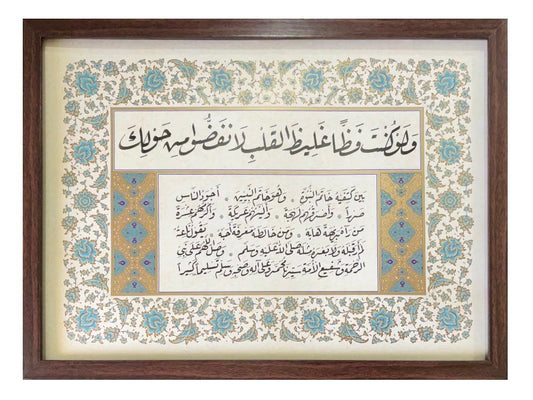 ولو كنت فظا غليظ القلب لانفضوا من حولك
بين كتفيه خاتم النبوة وهو خاتم النبيين أجود الناس
صدرا وأصدقهم لهجة وألينهم عريكة وأكرمهم عشرة
من رآه بديهة هابه ومن خالطه معرفة أحبه يقول ناعته
لم أر قبله ولا بعده مثله صلى الله عليه وسلم وصل اللهم على نبي
الرحمة وشفيع الأمة سيدنا محمد وعلى آله وصحبه وسلم تسليما كثيرا